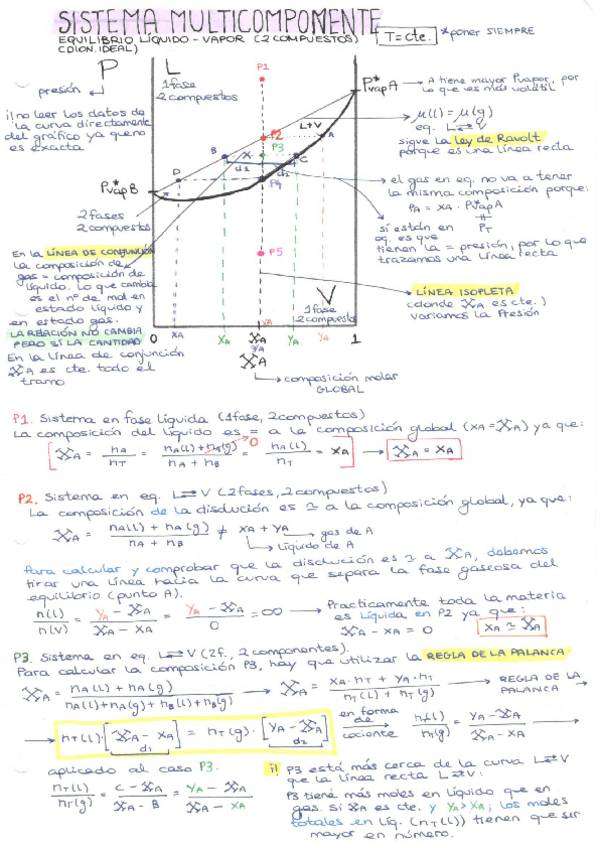 SISTEMA MULTICOMPONENTE
EQUILIBRIO LÍQUIDO - VAPOR (2 COMPUESTOS)
(DION. IDEAL)
T=cte. *poner SIEMPRE
P
presión
¡!no leer los datos de
la curva directamente
del gráfico ya que no
es exacta
L
1 fase
2 compuestos
P1
P2
P3
P4
P5
L+V
A
B
C
D
X
d1
d2
P*vap A
P*vap B
2 fases
2 compuestos
V
1 fase
2 compuestos
A tiene mayor Pvapor, por
lo que es más volátil
μ(l) = μ(g)
eq. L⇄V
sigue la ley de Raoult
porque es una línea recta
el gas en eq. no va a tener
la misma composición porque:
PA = XA · P*vap A
≠
PT
si están en
eq. es que
tienen la = presión, por lo que
trazamos una línea recta
LÍNEA ISOPLETA
(donde XA es cte.)
variamos la Presión
En la LÍNEA DE CONJUNCIÓN
la composición de
gas = composición de
líquido. Lo que cambia
es el nº de mol en
estado líquido y
en estado gas.
LA RELACIÓN NO CAMBIA
PERO SÍ LA CANTIDAD
En la línea de conjunción
XA es cte. todo el
tramo
0 XA XA YA XA YA YA 1
XA
composición molar
GLOBAL
P1. Sistema en fase líquida (1 fase, 2 compuestos)
La composición del líquido es = a la composición global (xA = XA) ya que:
XA = nA / nT = nA(l) + nA(g) / nA + nB = nA(l) / nT = xA → XA = xA
0
P2. Sistema en eq. L⇄V (2 fases, 2 compuestos)
La composición de la disolución es ≃ a la composición global, ya que:
XA = nA(l) + nA(g) / nA + nB ≠ xA + yA → gas de A
líquido de A
Para calcular y comprobar que la disolución es ≃ a XA, debemos
tirar una línea hacia la curva que separa la fase gaseosa del
equilibrio (punto A).
n(l) / n(v) = yA - XA / XA - xA = yA - XA / 0 = ∞ → Practicamente toda la materia
es líquida en P2 ya que:
XA - xA = 0 xA ≃ XA
P3. Sistema en eq. L⇄V (2f., 2 componentes).
Para calcular la composición P3, hay que utilizar la REGLA DE LA PALANCA
XA = nA(l) + nA(g) / nA(l) + nA(g) + nB(l) + nB(g) → XA = xA · nT + yA · nT / nT(l) + nT(g) → REGLA DE LA
PALANCA →
→ nT(l) · [XA - xA] = nT(g) · [yA - XA] en forma de cociente nT(l) / nT(g) = yA - XA / XA - xA →
d1 d2
aplicado al caso P3.
nT(l) / nT(g) = C - XA / XA - B = yA - XA / XA - xA
¡! P3 está más cerca de la curva L⇄V
que la línea recta L⇄V:
P3 tiene más moles en líquido que en
gas. Si XA es cte. y yA > xA; los moles
totales en líq. (nT(l)) tienen que ser
mayor en número.